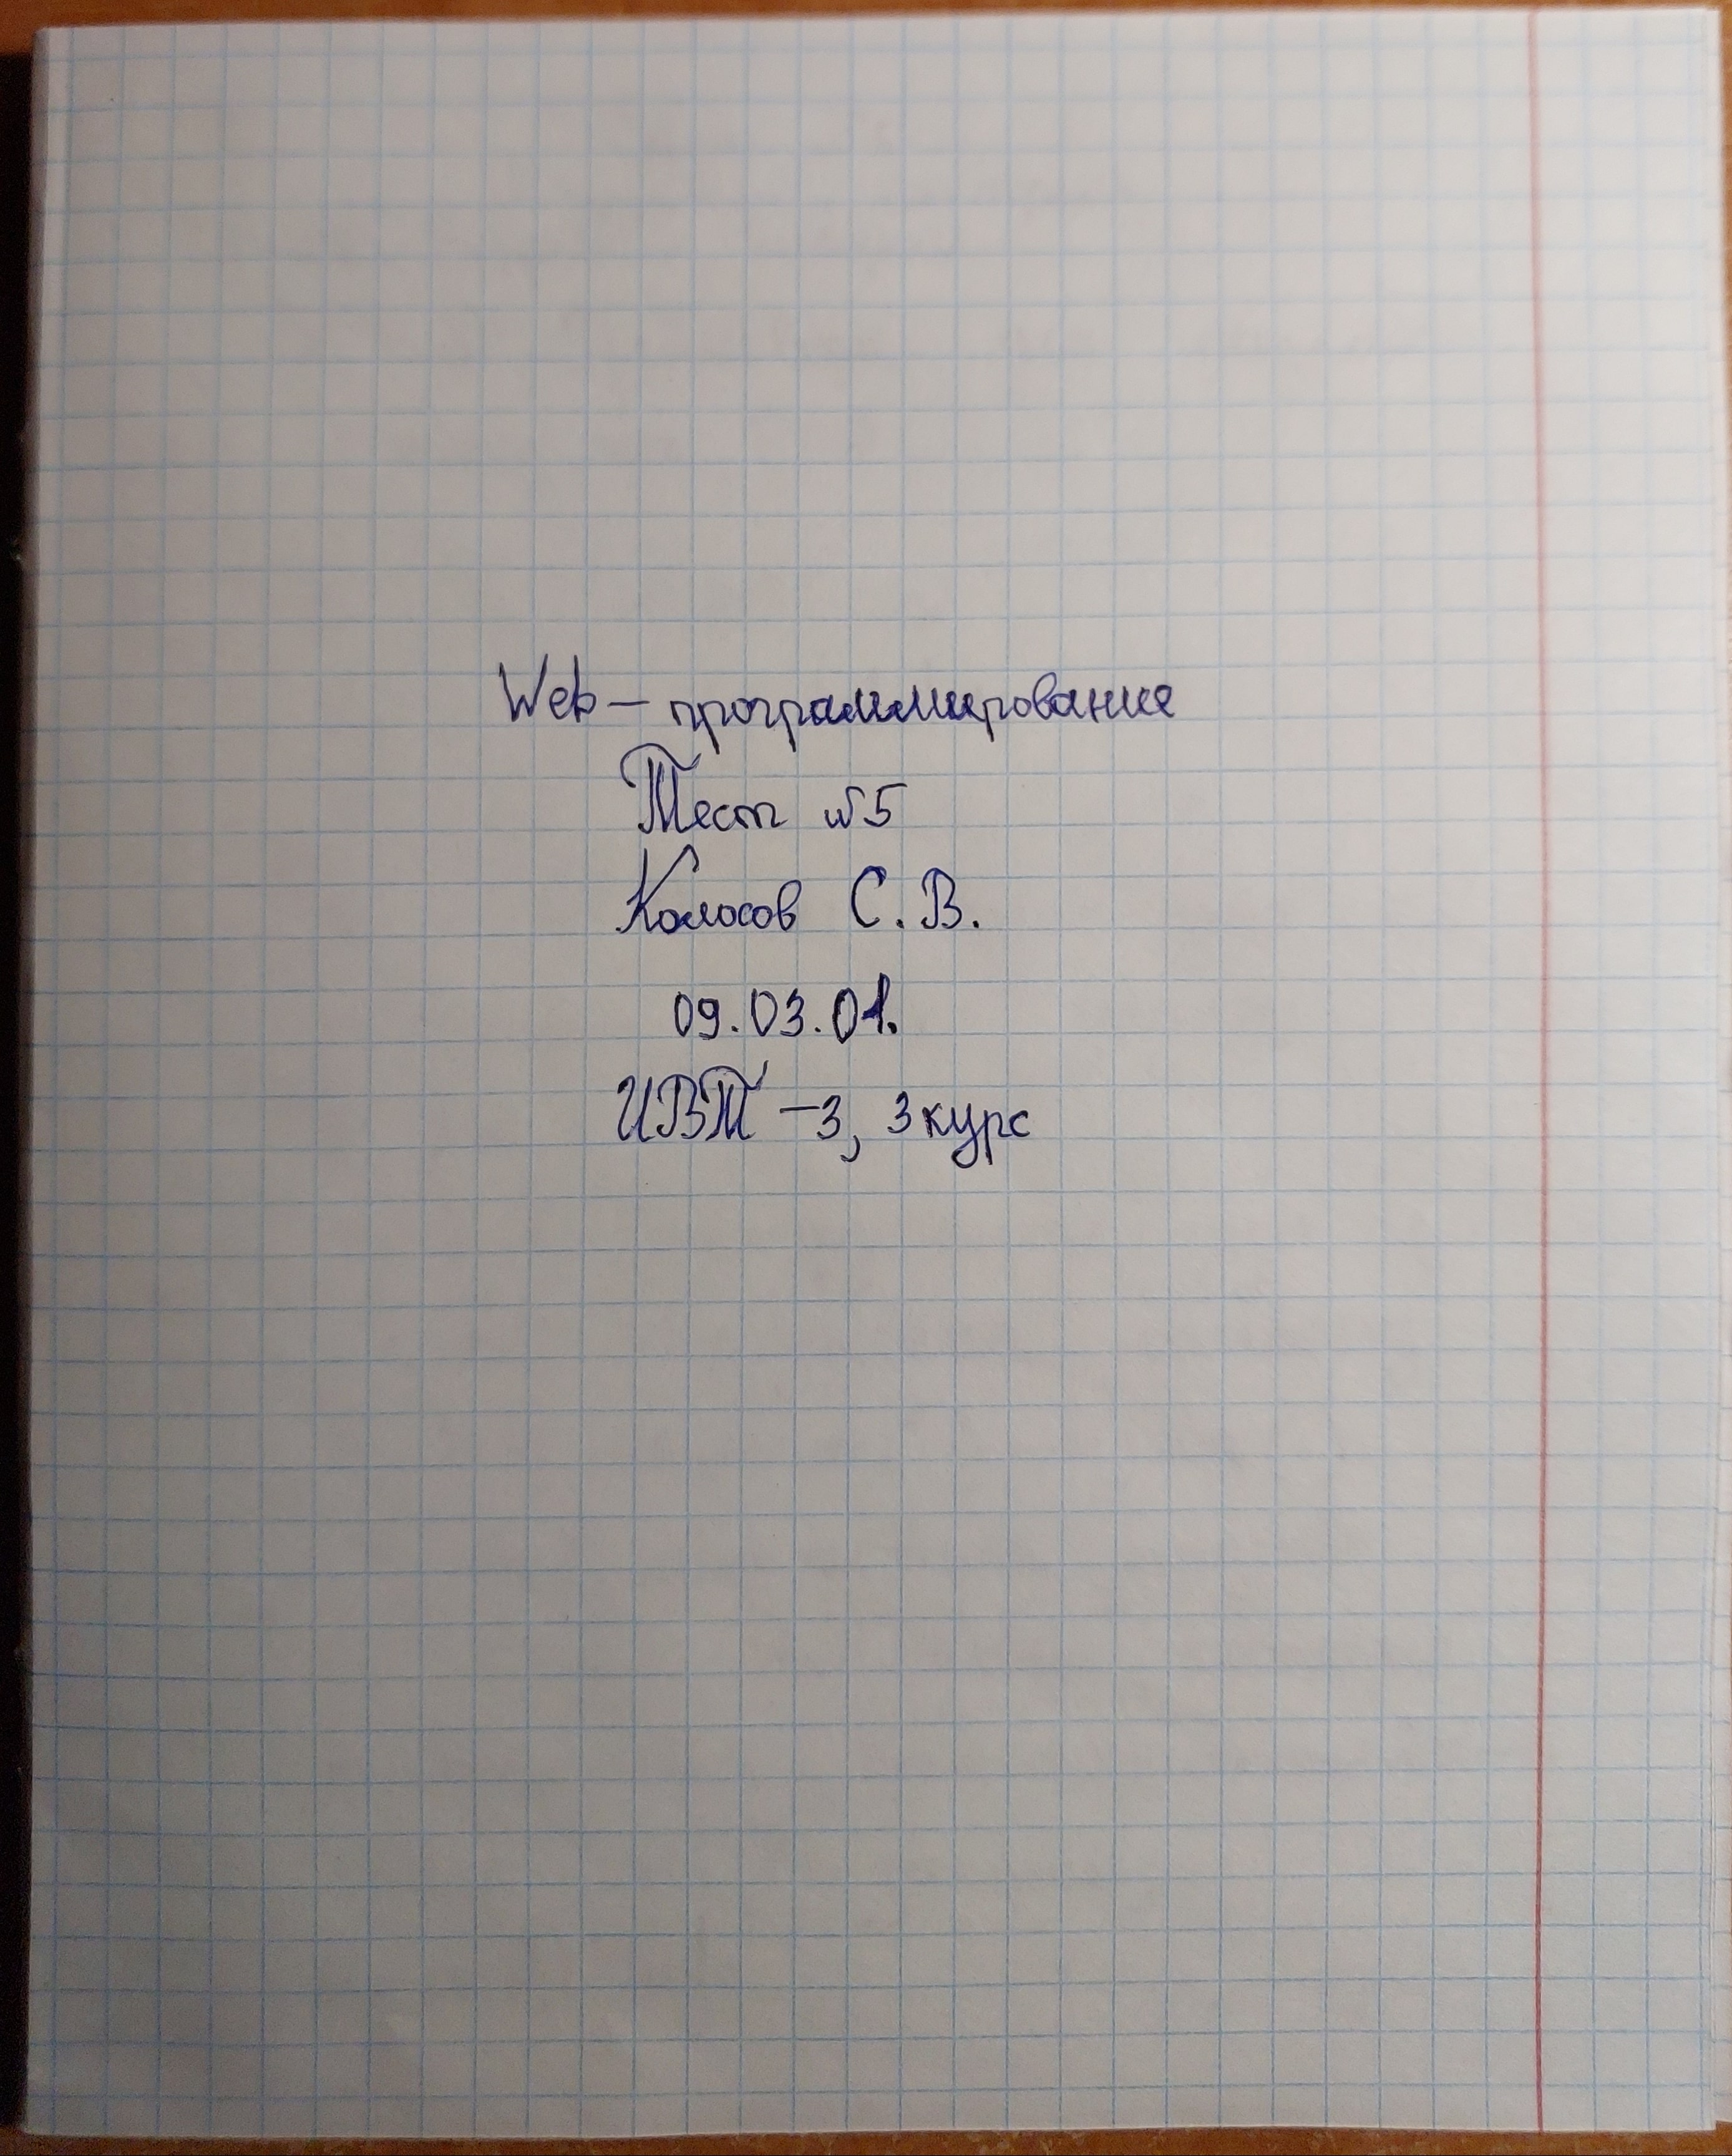 Web – программирование
Тест №5
Колосов С. В.
09.03.01.
ИВТ – 3, 3 курс